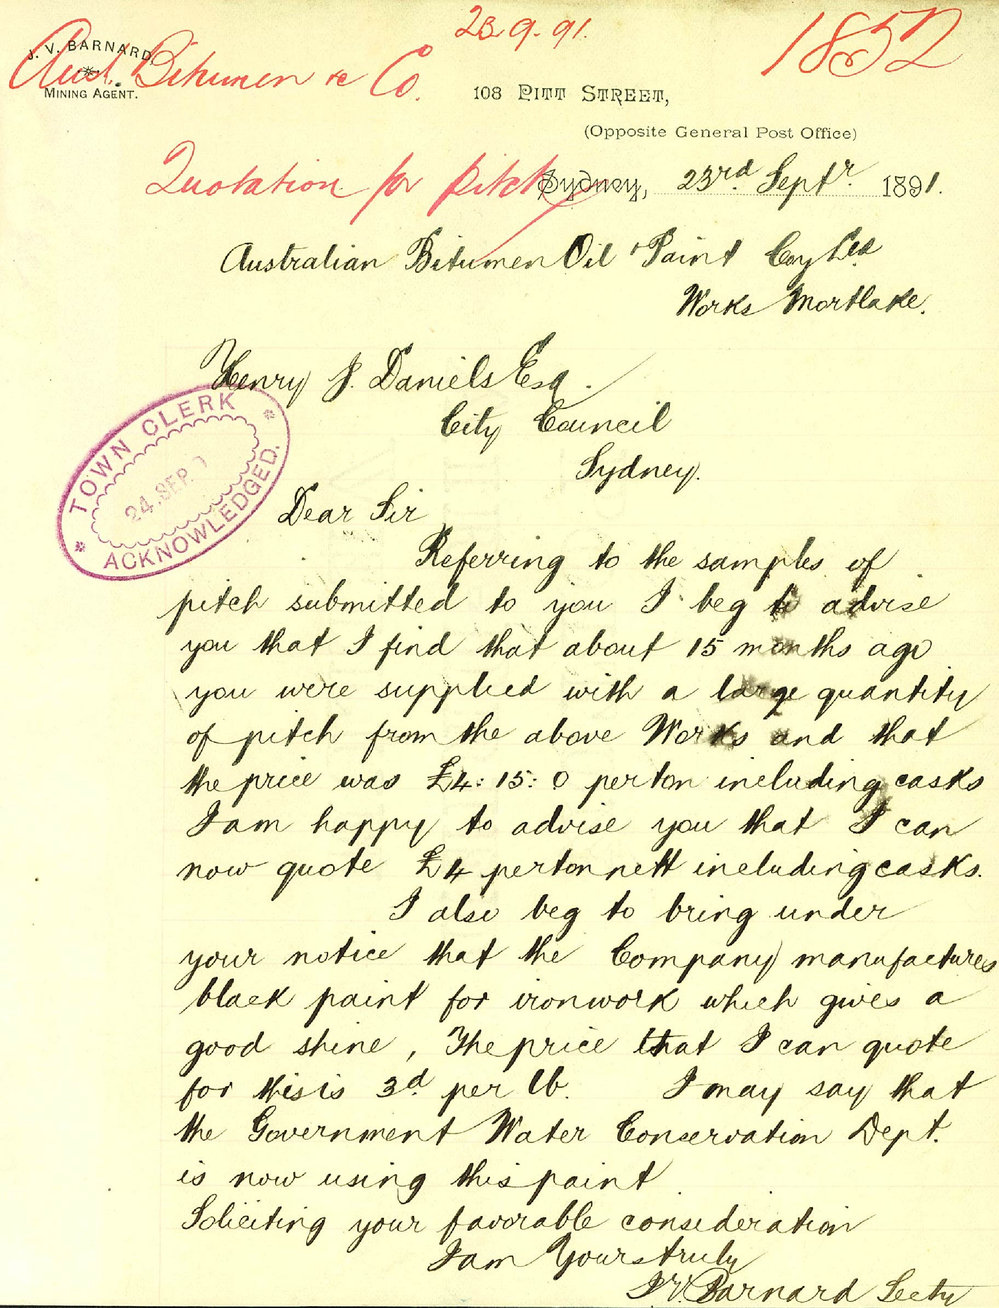 23.9.91.
1852
J. V. BARNARD,
MINING AGENT.
Aust. Bitumen &c Co.
108 PITT STREET,
(Opposite General Post Office)
Quotation for pitch
Sydney, 23rd Septr. 1891.
Australian Bitumen Oil & Paint Coy Ld
Works Mortlake.
Henry J. Daniels Esq.
City Council
Sydney.
TOWN CLERK
24. SEP. 
ACKNOWLEDGED.
Dear Sir
Referring to the samples of
pitch submitted to you I beg to advise
you that I find that about 15 months ago
you were supplied with a large quantity
of pitch from the above Works and that
the price was £4: 15: 0 per ton including casks
I am happy to advise you that I can
now quote £4 per ton nett including casks.
I also beg to bring under
your notice that the Company manufactures
black paint for ironwork which gives a
good shine, The price that I can quote
for this is 3d. per lb. I may say that
the Government Water Conservation Dept.
is now using this paint
Soliciting your favorable consideration
I am Yours truly
J.V. Barnard Secty